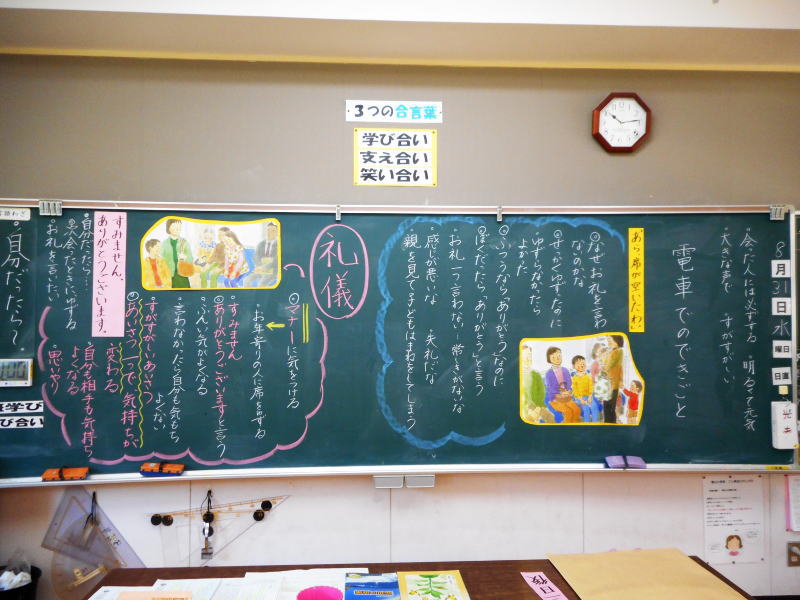 ・3つの合言葉・
学び合い
支え合い
笑い合い
8
月
31
日
水
曜日
日直
・会った人には必ずする　明るくて元気
・大きな声で　・すがすがしい
電車でのできごと
あら席が空いたわ。
◎なぜお礼を言わ
ないのかな
◎せっかくゆずったのに
ゆずらなかったら
よかった
◎ふつうなら「ありがとう」なのに
◎ぼくだったら「ありがとう」と言う
・お礼一つ言わない！常しきがないな
・感じが悪いな　・失礼だな
・親を見て子どもはまねをしてしまう
礼儀
◎マナーに気をつける
・お年寄りの人に席をゆずる
・すみません
◎ありがとうございますと言う
・ふんい気がよくなる
・言わなかったら自分も気もち
よくない
・すがすがしいあいさつ
◎あいさつ一つで気持ちが
変わる
・自分も相手も気持ち
よくなる
・思いやり
すみません。
ありがとうございます。
・自分だったら…
・出会ったときにゆずる
・お礼を言いたい
・自分だったら〜
学び
び合い